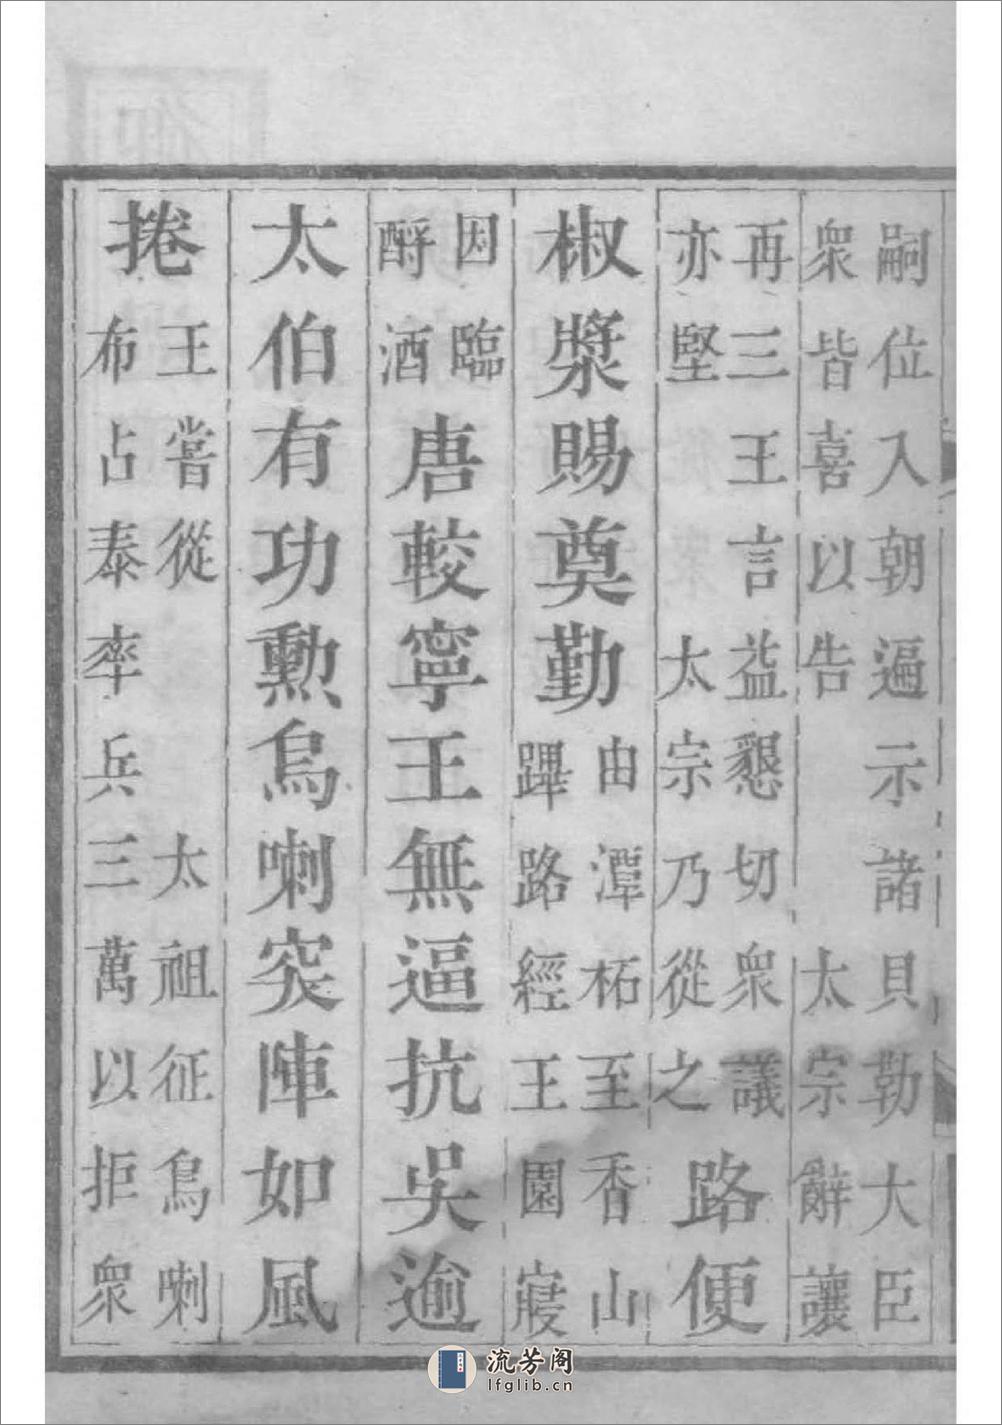 嗣位入朝遍示諸貝勒大臣
衆皆喜以告 太宗辭讓
再三王言益懇切衆議
亦堅 太宗乃從之
路便
椒漿賜奠勤
由潭柘至香山
蹕路經王園寢
因臨
酹酒
唐較寧王無逼抗吳逾
太伯有功勳烏喇突陣如風
捲
王嘗從 太祖征烏喇
布占泰率兵三萬以拒衆
流芳阁
lfglib.cn